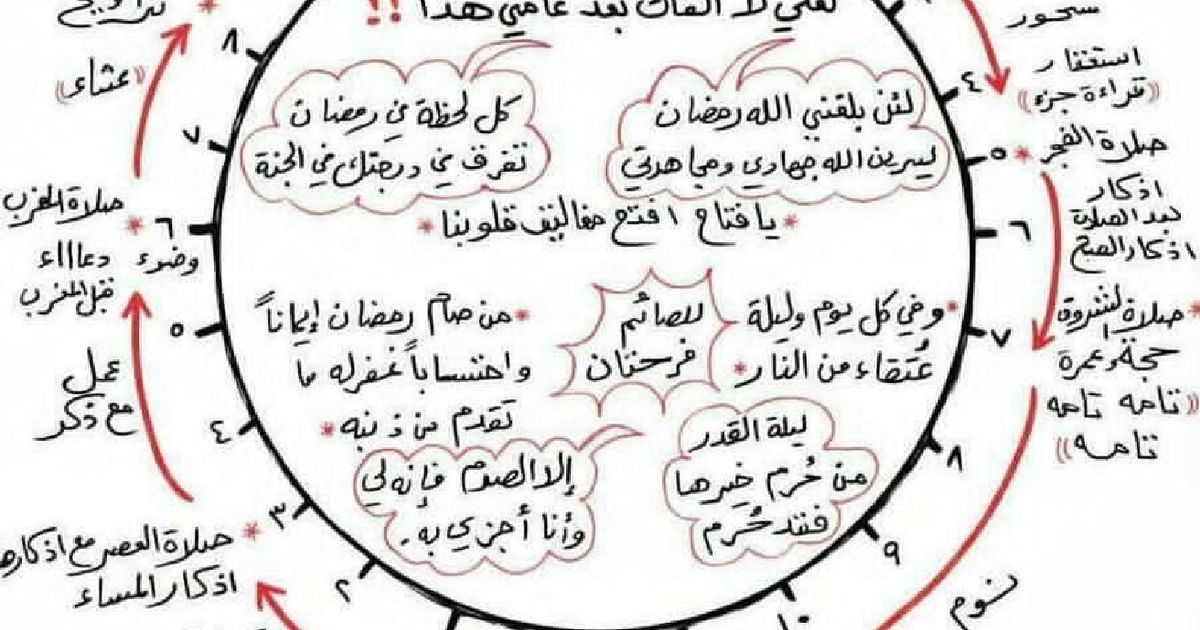 لعلي لا ألقاك بعد عامي هذا !!
لئن بلغني الله رمضان
ليرين الله جهادي ومجاهدتي
كل لحظة في رمضان
تفرق في درجتك في الجنة
* يا فتاح افتح مغاليق قلوبنا *
* وفي كل يوم وليلة
عُتقاء من النار *
للصائم
فرحتان
* من صام رمضان إيماناً
واحتساباً غفر له ما
تقدم من ذنبه *
ليلة القدر
من حُرم خيرها
فقد حُرم
إلا الصوم فإنه لي
وأنا أجزي به .
سحور
استغفار
((قراءة جزء))
٤
٥ * صلاة الفجر
اذكار
بعد الصلاة
اذكار الصبح
٦
٧
* صلاة الشروق
حجة وعمرة
((تامه تامه
تامه))
٨
٩
١٠
نوم
٢
٣ * صلاة العصر مع اذكارها
اذكار المساء
٤
عمل
مع ذكر
٥
٦ * صلاة المغرب
وضوء دعاااء
قبل المغرب
٧
((عشاء))
٨